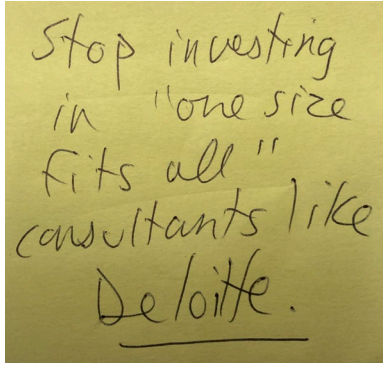 Stop investing
in "one size
fits all"
consultants like
Deloitte.